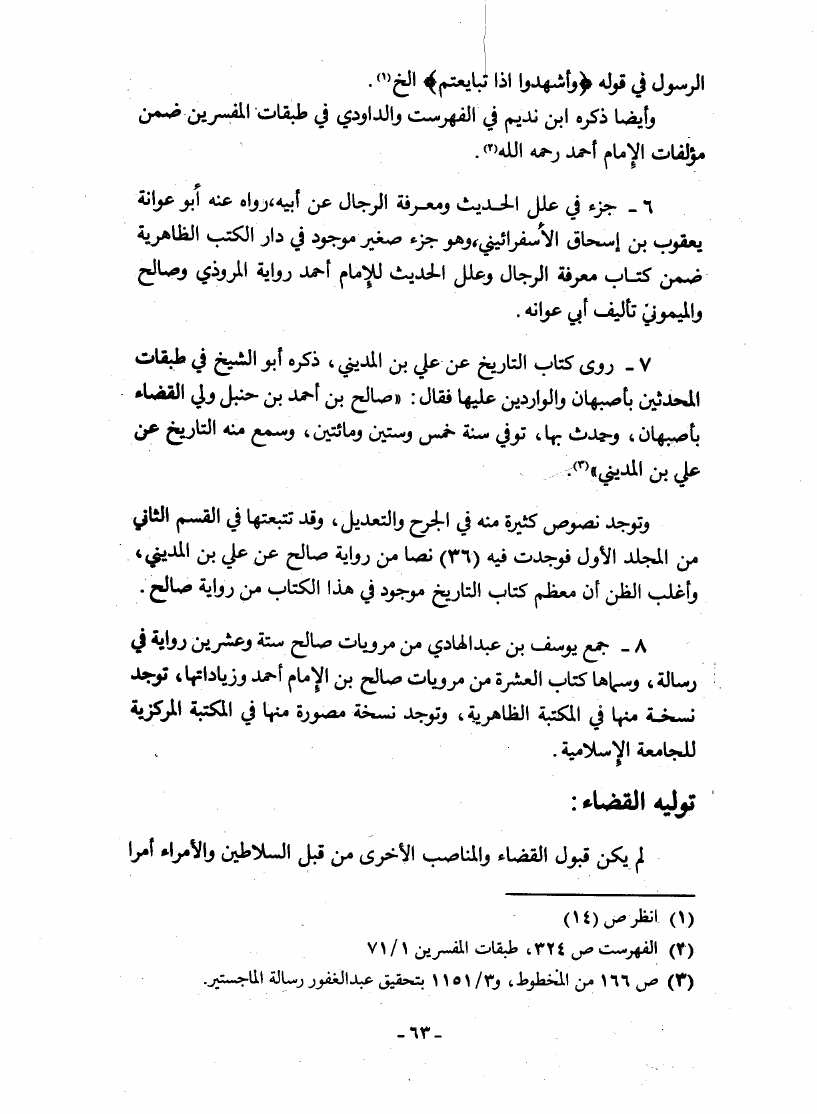 الرسول في قوله ﴿وأشهدوا اذا تبايعتم﴾ الخ(١).
وأيضا ذكره ابن نديم في الفهرست والداودي في طبقات المفسرين ضمن
مؤلفات الإمام أحمد رحمه الله(٢).
٦ - جزء في علل الحديث ومعرفة الرجال عن أبيه، رواه عنه أبو عوانة
يعقوب بن إسحاق الأسفرائيني، وهو جزء صغير موجود في دار الكتب الظاهرية
ضمن كتاب معرفة الرجال وعلل الحديث للإمام أحمد رواية المروذي وصالح
والميمونيّ تأليف أبي عوانه.
٧ - روى كتاب التاريخ عن علي بن المديني، ذكره أبو الشيخ في طبقات
المحدثين بأصبهان والواردين عليها فقال: «صالح بن أحمد بن حنبل ولي القضاء
بأصبهان، وحدث بها، توفي سنة خمس وستين ومائتين، وسمع منه التاريخ عن
علي بن المديني»(٣).
وتوجد نصوص كثيرة منه في الجرح والتعديل، وقد تتبعتها في القسم الثاني
من المجلد الأول فوجدت فيه (٣٦) نصا من رواية صالح عن علي بن المديني،
وأغلب الظن أن معظم كتاب التاريخ موجود في هذا الكتاب من رواية صالح.
٨ - جمع يوسف بن عبدالهادي من مرويات صالح ستة وعشرين رواية في
رسالة، وسماها كتاب العشرة من مرويات صالح بن الإمام أحمد وزياداتها، توجد
نسخة منها في المكتبة الظاهرية، وتوجد نسخة مصورة منها في المكتبة المركزية
للجامعة الإسلامية.
توليه القضاء:
لم يكن قبول القضاء والمناصب الأخرى من قبل السلاطين والأمراء أمرا
(١) انظر ص (١٤)
(٢) الفهرست ص ٣٢٤، طبقات المفسرين ٧١/١
(٣) ص ١٦٦ من المخطوط، و٣/ ١١٥١ بتحقيق عبدالغفور رسالة الماجستير.
- ٦٣ -